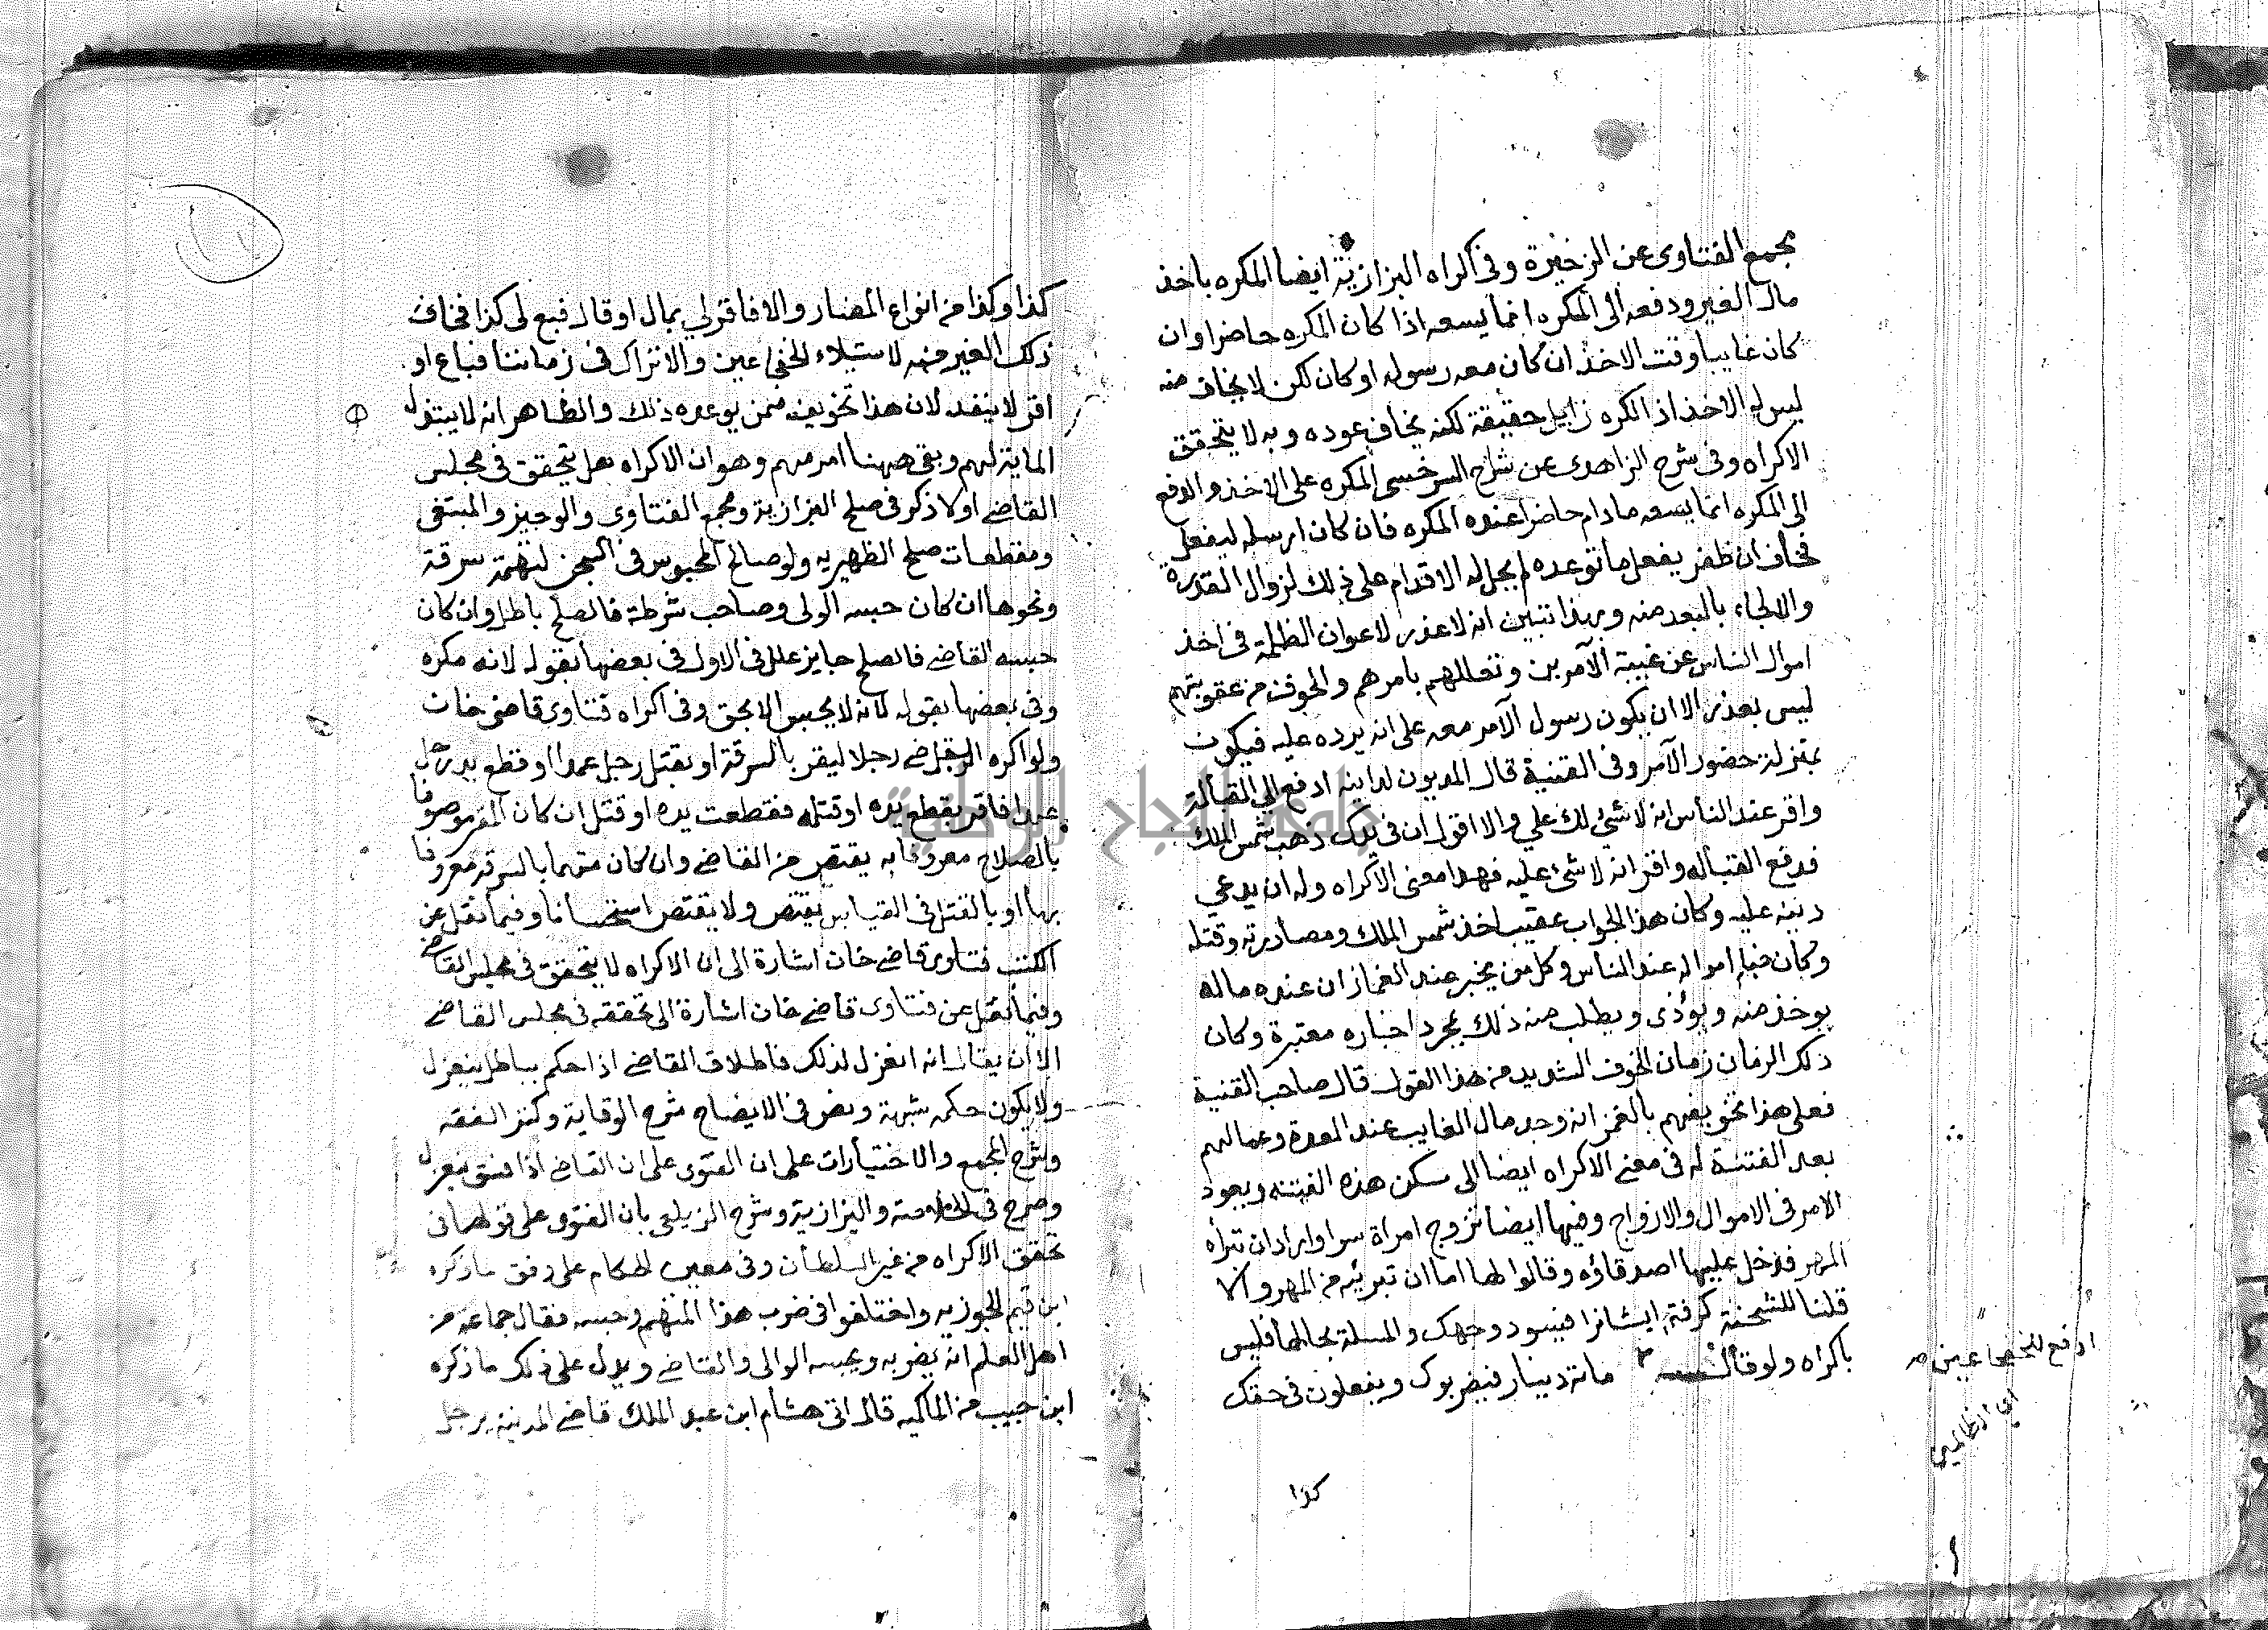 مجمع الفتاوى عن الزخيرة وفى اكراه البزازية ايضا المكره باخذ
مال الغير ودفعه الى المكره انما يسعه اذا كان المكره حاضرا وان
كان غايبا وقت الاخذ ان كان معه رسوله او كان لكن لا يخاف منه
ليس له الاخذ اذ الكره زايل حقيقة لكنه يخاف عوده وبه لا يتحقق
الاكراه وفى شرح الزاهدى عن شرح السرخسى المكره على الاخذ والدفع
الى المكره انما يسعه مادام حاضرا عنده المكره فان كان ارسله ليفعل
فخاف ان ظفر يفعل ما توعده لم يحل له الاقدام على ذلك لزوال القدرة
والالجاء بالبعد منه وبهذا تبين انه لا عذر لاعوان الظلمة فى اخذ
اموال الناس عن غيبة الآمرين وتعللهم بامرهم والخوف من عقوبتهم
ليس بعذر الا ان يكون رسول الآمر معه على انه يرده عليه فيكون
بمنزلة حضور الآمر وفى القنية قال المديون لداينه ادفع الى القبالة
واقر عند الناس انه لا شئ لك علي والا اقول ان فى يدك ذهب شمس الملك
فدفع القبالة واقر انه لا شئ عليه فهذا معنى الاكراه وله ان يدعي
دينه عليه وكان هذا الجواب عقيب اخذ شمس الملك ومصادرته وقتله
وكان خبايا امواله عند الناس وكل من يخبر عند الغماز ان عنده ماله
يوخذ منه ويؤذى ويطلب منه ذلك بمجرد اخباره معتبرة وكان
ذلك الزمان زمان الخوف الشديد من هذا القول قال صاحب القنية
فعلى هذا تخويفهم بالغمز انه وجد مال الغايب عند المعدة وعمالهم
بعد الفتنة له فى معنى الاكراه ايضا الى سكن هذه الفتنه ويعود
الامر فى الاموال والازواج وفيها ايضا تزوج امراة سرا واراد ان تبرأه
المهر فدخل عليها اصدقاؤه وقالوا لها اما ان تبرئيه من المهر والا
قلنا للشحنة كرفته ايشانرا فيسود وجهك والمسلة بحالها فليس
باكراه ولو قال مائة دينار فيضربوك ويفعلون فى حقك
ادفع للخفاعين صح
اي الظالمين
كذا
كذا وكذا من انواع المضار والا فاقر لي بمال او قال فبع لى كذا فخاف
ذلك الغير منه لاستيلاء الخفاعين والاتراك فى زماننا فباع او
اقر لا ينفذ لان هذا تخويف ممن يوعده ذلك والظاهر انه لا يبتذل
الماية لهم وبقى ههنا امر مهم وهو ان الاكراه هل يتحقق فى مجلس
القاضى اولا ذكر فى صلح البزازية ومجمع الفتاوى والوجيز والمنتقى
ومقطعات صلح الظهيريه ولو صالح المحبوس فى السجن لتهمة سرقة
ونحوها ان كان حبسه الولى وصاحب شرطة فالصلح باطل وان كان
حبسه القاضى فالصلح جايز علل فى الاول فى بعضها بقوله لانه مكره
وفى بعضها بقوله لانه لا يحبس الا بحق وفى اكراه فتاوى قاضى خان
ولو اكره القاضى رجلا ليقر بالسرقة او بقتل رجل عمدا او قطع يد رجل
عمدا فاقر بقطع يده او قتله فقطعت يده او قتل ان كان المقر موصوفا
بالصلاح معروفا به يقتص من القاضى وان كان متهما بالسرقة معروفا
بها او بالقتل فى القياس يقتص ولا يقتص استحسانا وفيما نقل عن
الكتب فتاوى قاضى خان اشارة الى ان الاكراه لا يتحقق فى مجلس القاضى
وفيما نقل عن فتاوى قاضى خان اشارة الى تحققه فى مجلس القاضى
الا ان يقال انه انعزل لذلك فاطلاق القاضى اذا حكم بباطل ينعزل
ولا يكون حكمه شبهة ونص فى الايضاح شرح الوقاية وكنز الفقه
وشرح المجمع والاختيارات على ان الفتوى على ان القاضى اذا فسق ينعزل
وصرح فى الخلاصة والبزازية وشرح الزيلعى بان الفتوى على قولهما فى
تحقق الاكراه من غير السلطان وفى معين الحكام على وفق ما ذكره
ابن قيم الجوزيه واختلفوا فى ضرب هذا المتهم وحبسه فقال جماعة من
اهل العلم انه يضربه ويحبسه الوالى والقاضى ويدل على ذلك ما ذكره
ابن حبيب من المالكيه قال اتى هشام ابن عبد الملك قاضى المدينة برجل
جامعة النجاح الوطنية